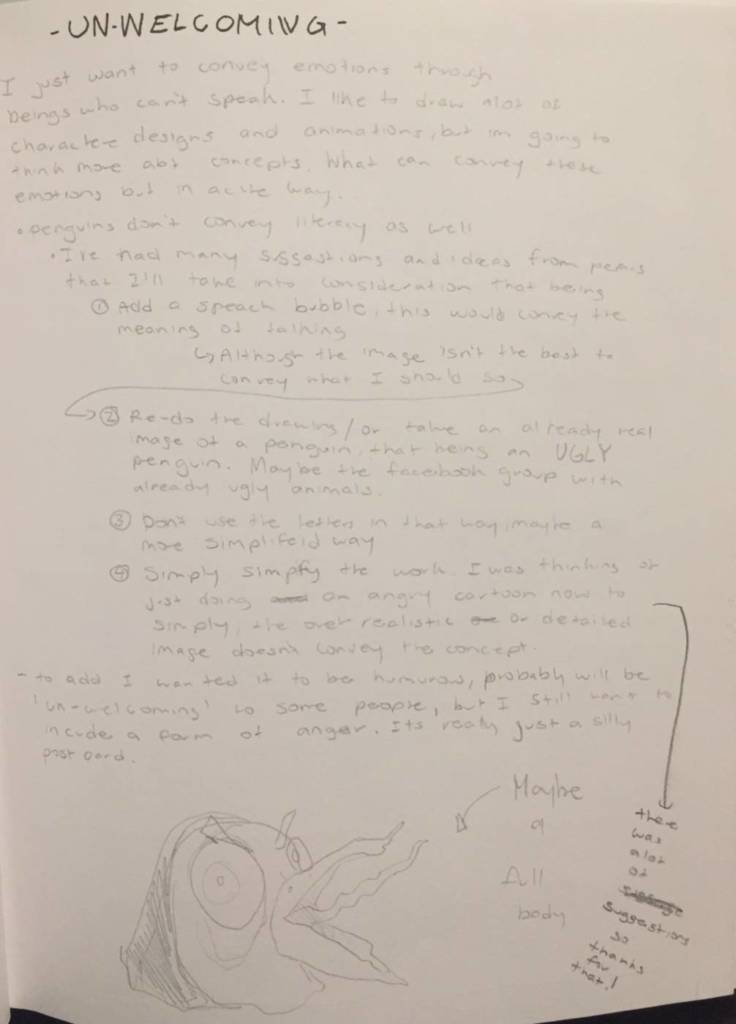 -UN-WELCOMING-
I just want to convey emotions through
beings who can't speak. I like to draw alot of
character designs and animations, but im going to
think more abt concepts. What can convey these
emotions but in a cute way.
• penguins don't convey literecy as well
• I've had many suggestions and ideas from peers
that I'll take into consideration that being
① Add a speach bubble, this would convey the
meaning of talking
↳ Although the image isn't the best to
convey what I should say
→ ② Re-do the drawing/or take an already real
image of a penguin, that being an UGLY
penguin. Maybe the facebook group with
already ugly animals.
③ Don't use the letters in that way, maybe a
more simplifeid way
④ Simply simpfy the work. I was thinking of
just doing an angry cartoon now to
simply, the over realistic or detailed
image doesn't convey the concept.
- to add I wanted it to be humurous, probably will be
'un-welcoming' to some people, but I still want to
incude a form of anger. Its really just a silly
post card.
Maybe
a
All
body
there
was
alot
of
suggestions
so
thanks
for
that!